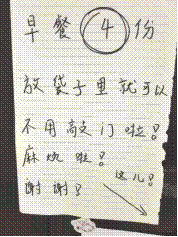 早餐 4 份
放袋子里就可以
不用敲门啦！
麻烦啦！
谢谢！ 这儿！